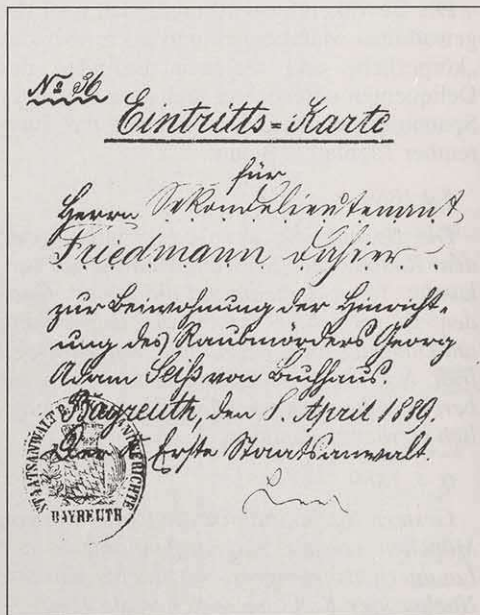 No 36
Eintritts=Karte
für
Herrn Sekondelieutenant
Friedmann dahier
zur Beiwohnung der Hinricht-
ung des Raubmörders Georg
Adam Seiß von Buchhaus.
Bayreuth, den 8. April 1889.
Der I. Erste Staatsanwalt.
STAATSANWALT LANDGERICHTE
BAYREUTH